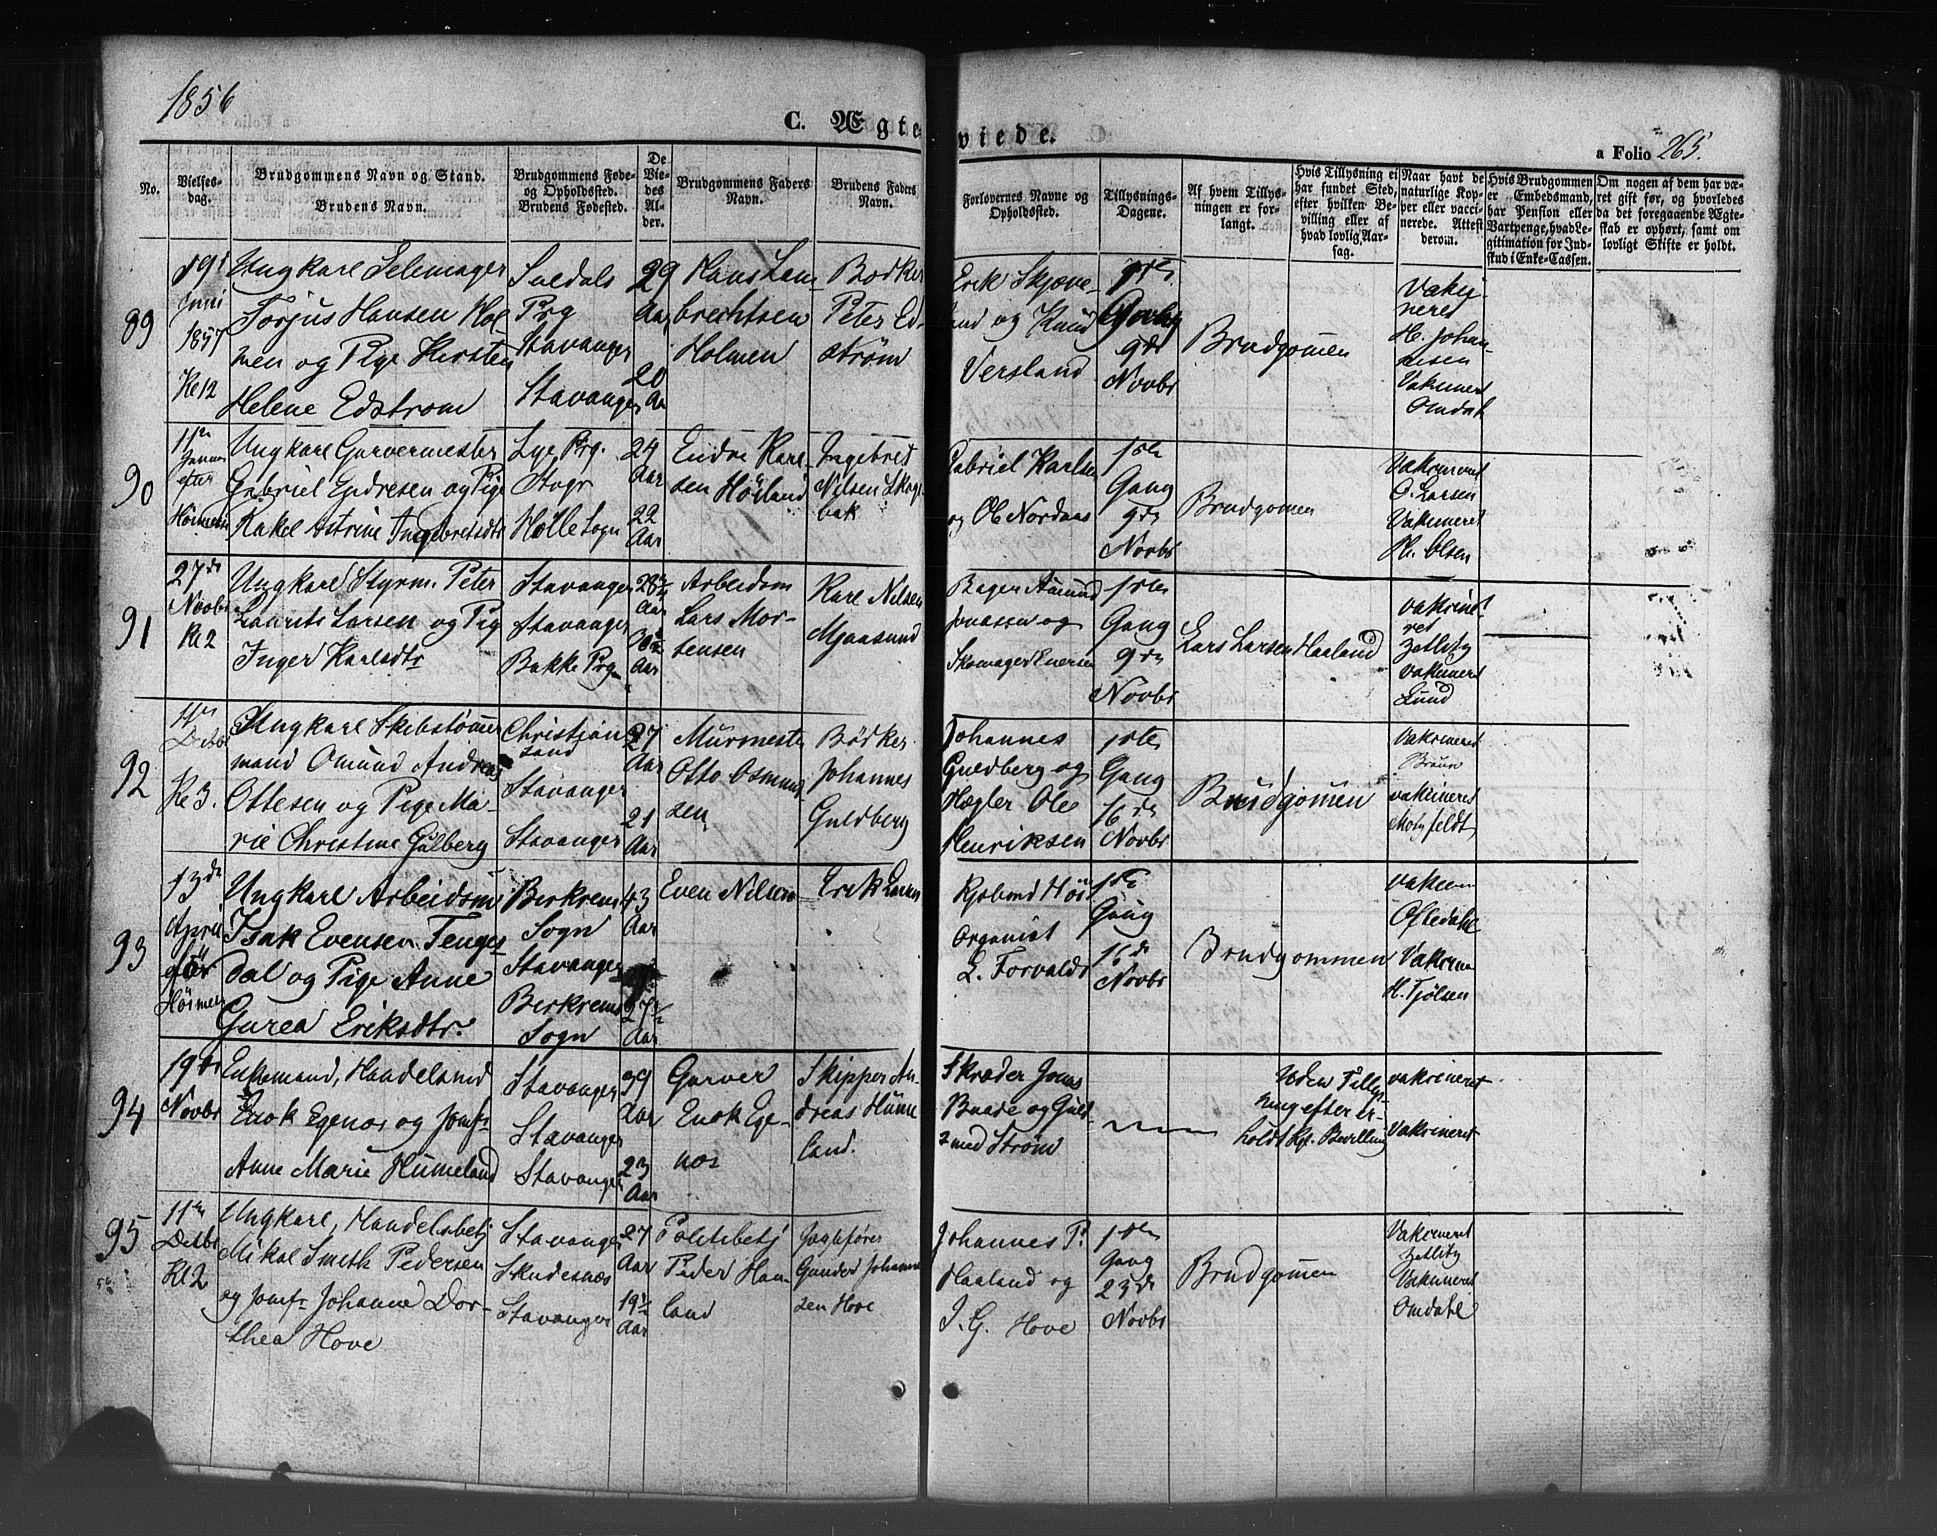 1856
C. Ægteviede.
a Folio 265.
No.
Vielsesdag.
Brudgommens Navn og Stand.
Brudens Navn.
Brudgommens Føde-
og Opholdssted.
Brudens Fødested.
De
Vie-
des
Al-
der.
Brudgommens Faders
Navn.
Brudens Faders
Navn.
Forlovernes Navne og
Opholdssted.
Tillysnings-
Dagene.
Af hvem Tillys-
ningen er for-
langt.
Hvis Tillysning ei
har fundet Sted,
efter hvilken Be-
villing eller af
hvad lovlig Aar-
sag.
Naar havt de
naturlige Kop-
per eller vacci-
nerede. Attest
derom.
Hvis Brudgommen
er Embedsmand,
har Pension eller
Vartpenge, hvad Le-
gitimation for Ind-
skud i Enke-Cassen.
Om nogen af dem har væ-
ret gift før, og hvorledes
da det foregaaende Ægte-
skab er ophørt, samt om
lovligt Skifte er holdt.
89
19
Juni
1857
Kl 12
Ungkarl Seilmager
Torjus Hansen Hol
men og Pige Kirsten
Helene Edstrom
Suldals
Prg
Stavanger
Stavanger
29
Aar
20
Aar
Hans Lem
brechtsen
Holmen
Bødker
Peter Ed-
strøm
Erik Skjæve-
land og Knud
Versland
1ste
Govbg
9de
Novbr
Brudgomen
Vakci-
neret
H. Johan-
nesen
Vakcineret
Omdal
90
11te
Januar
efter
Høimessen
Ungkarl Garvermester
Gabriel Endresen og Pige
Rakel Astrine Ingebretsdtr
Lye Prg.
Stvgr
Holle Sogn
24
Aar
22
Aar
Endre Karl-
sen Høiland
Ingebret
Nilsen Skog-
bak
Gabriel Karlsen
og Ole Nordaas
1ste
Gang
9de
Novbr
Brudgomen
Vakcineret
O. Larsen
Vakcineret
H. Olsen
91
27de
Novbr
Kl 2
Ungkarl Styrm. Peter
Laurits Larsen og Pig
Inger Karlsdtr
Stavanger
Stavanger
Bakke Prg
28½
Aar
30½
Aar
Arbeidsm
Lars Mor-
tensen
Karl Nilsen
Mjaasund
Bager Amund
Jonassen og
Skomager Enersen
1ste
Gang
9de
Novbr
Lars Larsen Haaland
Vakcine-
ret
Zetlitz
Vakcineret
Lund
92
4de
Decbr
Kl 3.
Ungkarl Skibstømmer
mand Omund Andreas
Ottesen og Pige Ma-
rie Christine Gulberg
Christian
sand
Stavanger
Stavanger
27
Aar
21
Aar
Murmester
Otto Osmund
sen
Bødker
Johannes
Guldberg
Johannes
Guldberg og
Hægler Ole
Henriksen
1ste
Gang
16de
Novbr
Brudgomen
Vakcineret
Bruun
Vakcineret
Motzfeldt
93
13de
April
efter
Høimes
Ungkarl Arbeidsm
Isak Evensen Tenges
dal og Pige Anne
Gurea Eriksdtr.
Birkrem
Sogn
Stavanger
Birkrem
Sogn
43
Aar
27½
Aar
Even Nilsen
Erik Larsen
Organist
L. Torvalds
1ste
Gang
16de
Novbr
Brudgommen
Vakcine
Oftedahl
Vakcine
H. Tjølsen
94
19de
Novbr
Enkemand, Handelsmd
Enok Egenæs og Jomfr
Anne Marie Humeland
Stavanger
Stavanger
Stavanger
39
Aar
23
Aar
Garver
Enok Ege-
næs
Skipper An-
dreas Hume
land.
Skræder Jonas
Baade og Guld-
smed Strøm
Uden Tillys-
ning efter er-
holdt Kgl. Bevilling
Vakcineret
Vakcineret
95
11te
Decbr
Kl 2
Ungkarl, Handelsbetj
Mikal Smith Pedersen
og Jomfr Johanne Dor-
thea Hove
Stavanger
Skudesnæs
Stavanger
27
Aar
19½
Aar
Politibetj
Peder Haa-
land
Jagtefører
Gunder Johanne
sen Hove
Johannes P.
Haaland og
J. G. Hove
1ste
Gang
23de
Novbr
Brudgomen
Vakcineret
Zetlitz
Vakcineret
Omdahl